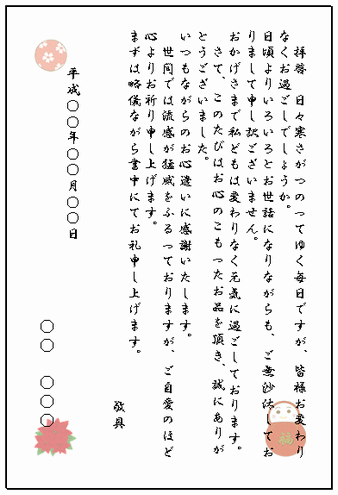 拝啓　日々寒さがつのってゆく毎日ですが、皆様お変わり
なくお過ごしでしょうか。
日頃よりいろいろとお世話になりながらも、ご無沙汰してお
りまして申し訳ございません。
おかげさまで私どもは変わりなく元気に過ごしております。
さて、このたびはお心のこもったお品を頂き、誠にありが
とうございました。
いつもながらのお心遣いに感謝いたします。
世間では流感が猛威をふるっておりますが、ご自愛のほど
心よりお祈り申し上げます。
まずは略儀ながら書中にてお礼申し上げます。
敬具
平成〇〇年〇〇月〇〇日
〇〇　〇〇〇
福